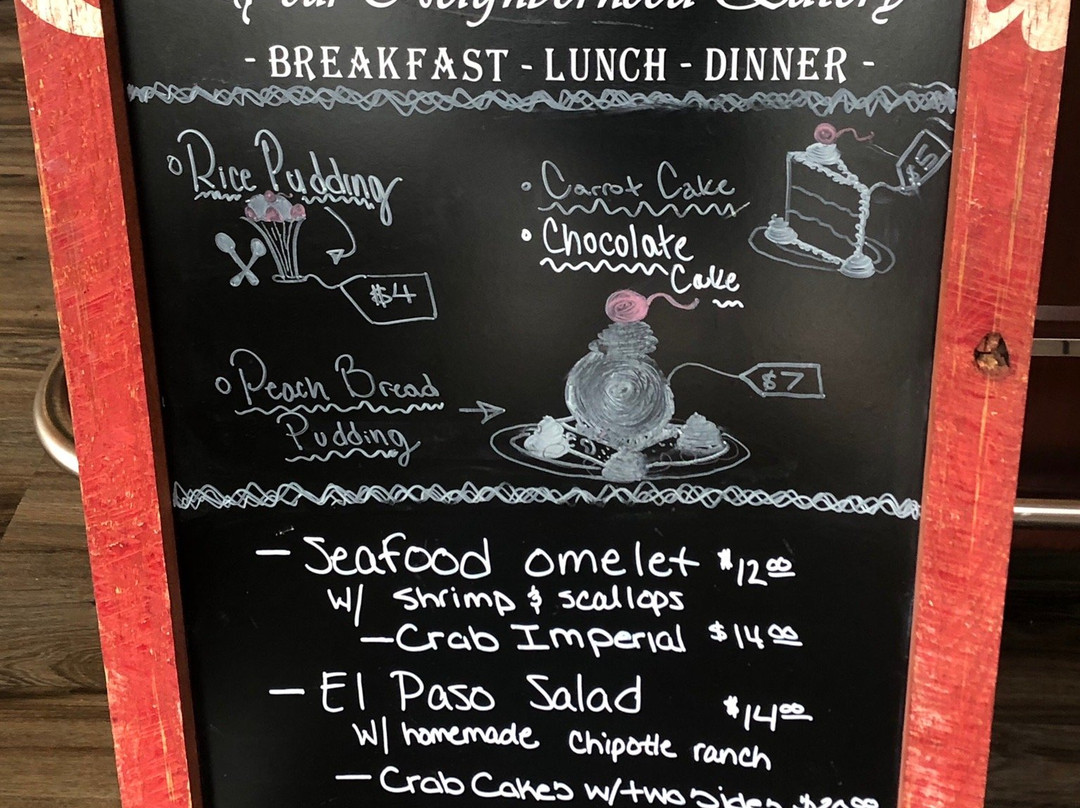 Your Neighborhood Eatery
- BREAKFAST - LUNCH - DINNER -
Rice Pudding
$4
Carrot Cake
$5
Chocolate
Cake
Peach Bread
Pudding
$7
- Seafood omelet $12.00
w/ shrimp & scallops
- Crab Imperial $14.00
- El Paso Salad $14.00
w/ homemade chipotle ranch
- Crab Cakes w/ two sides